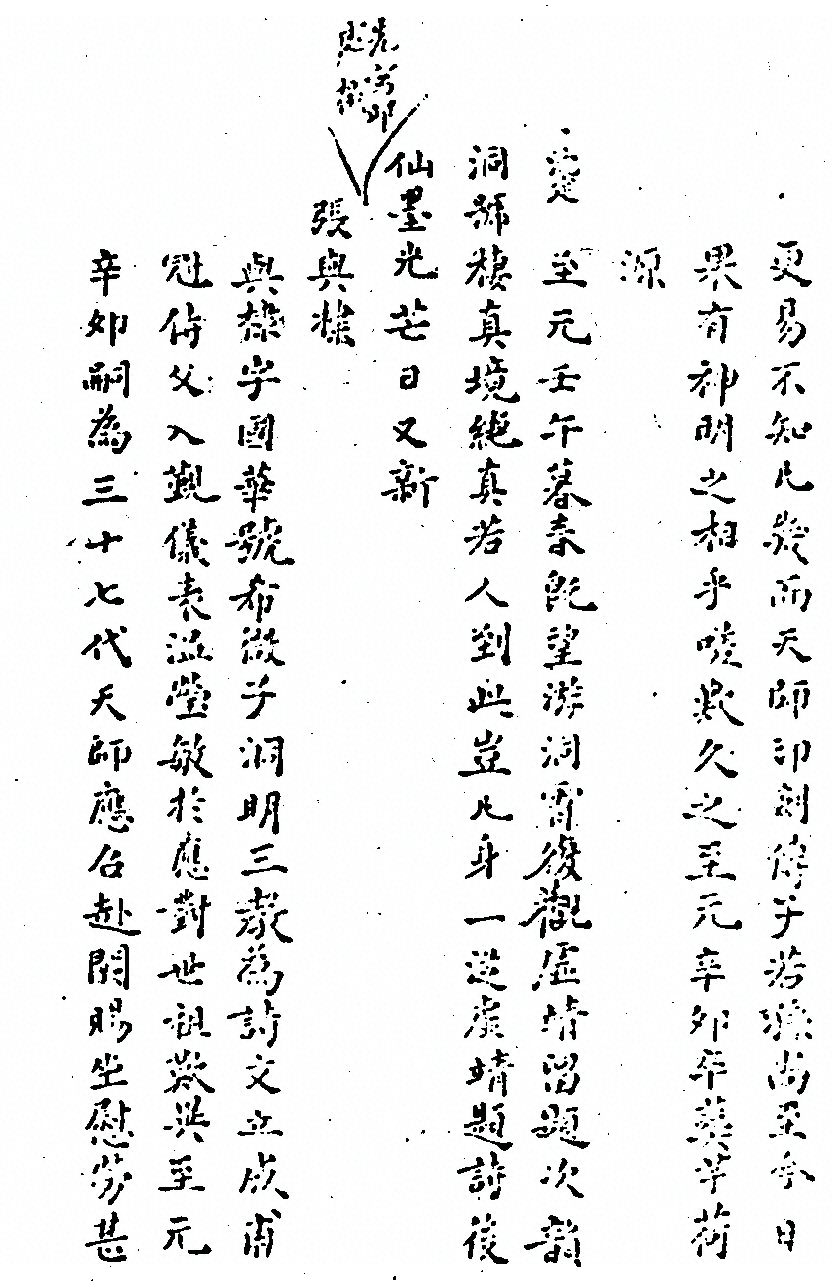 更易不知凡幾而天師印劍傳子若孫尚至今日
果有神明之相乎噫歎久之至元辛卯卒葬芋荷
源
至元壬午暮春既望游洞霄復觀虛靖留題次韻
洞號棲真境絕真若人到此豈凡身一從虛靖題詩後
仙墨光芒日又新
張與棣
與棣字國華號希微子洞明三教為詩文立成甫
冠侍父入覲儀表溫瑩敏於應對世祖歎異至元
辛卯嗣為三十七代天師應召赴闕賜坐慰勞甚